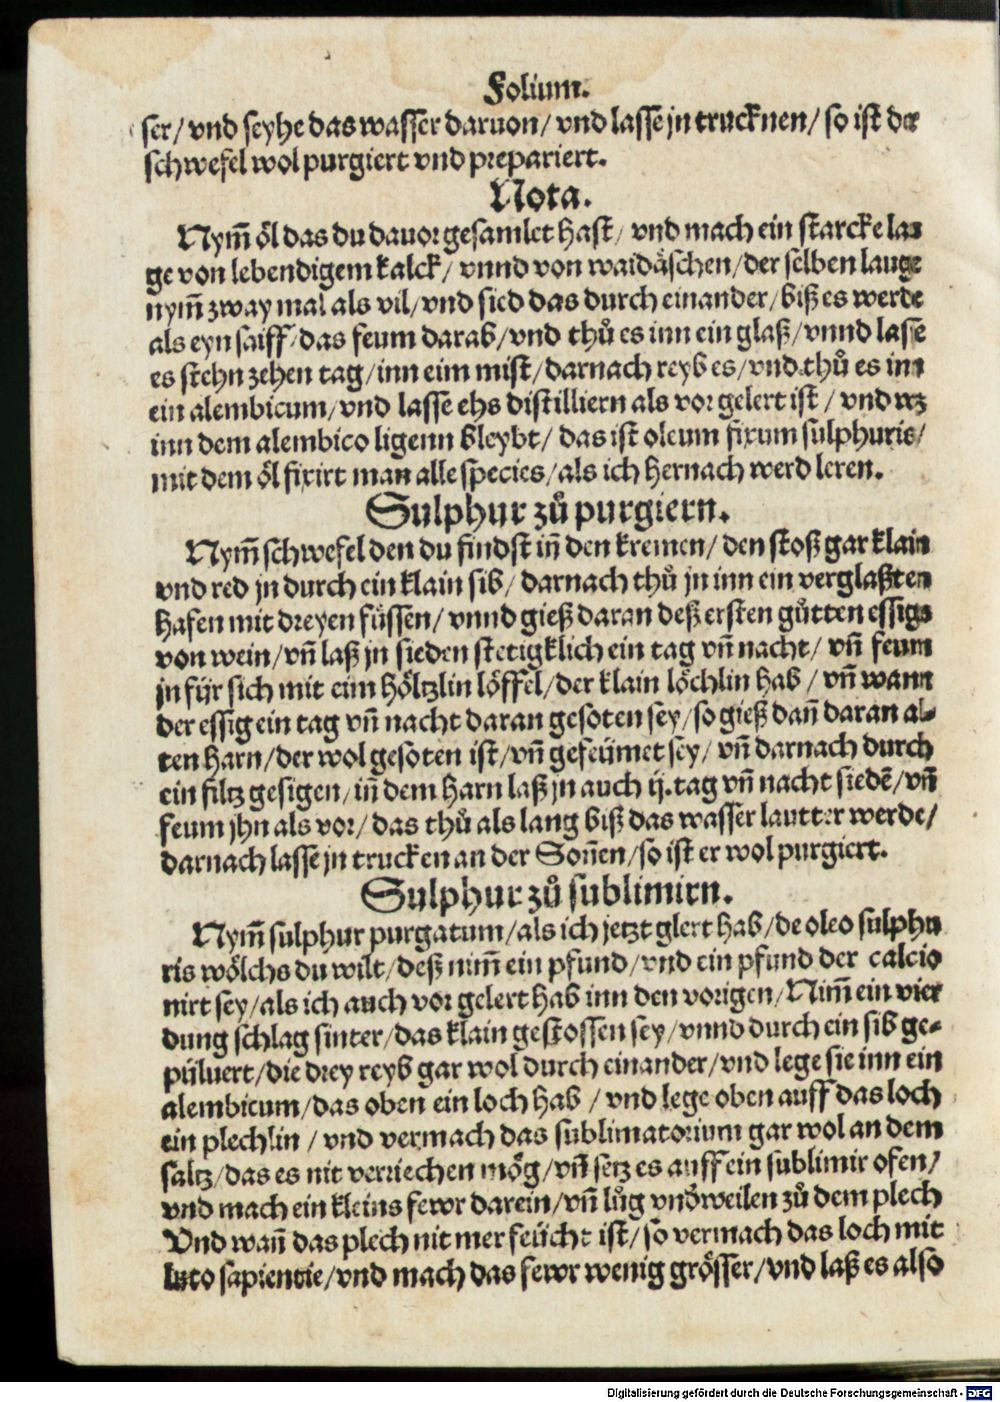 Folium.
ser/ vnd seyhe das wasser daruon/ vnd lasse jn trucknen/ so ist der
schwefel wol purgiert vnd prepariert.
Nota.
Nym̃ öl das du dauor gesamlet hast/ vnd mach ein starcke lau
ge von lebendigem kalck/ vnnd von waidäschen/ der selben lauge
nym̃ zway mal als vil/ vnd sied das durch einander/ biß es werde
als eyn saiff/ das feum darab/ vnd thů es inn ein glaß/ vnnd lasse
es stehn zehen tag/ inn eim mist/ darnach reyb es/ vnd thů es inn
ein alembicum/ vnd lasse ehs distilliern als vor gelert ist/ vnd wz
inn dem alembico ligenn bleybt/ das ist oleum fixum sulphuris/
mit dem öl fixirt man alle species/ als ich hernach werd leren.
Sulphur zů purgiern.
Nym̃ schwefel den du findst in̄ den kremen/ den stoß gar klain
vnd red jn durch ein klain sib/ darnach thů jn inn ein verglaßten
hafen mit dreyen füssen/ vnnd gieß daran deß ersten gůtten essigs
von wein/ vn̄ laß jn sieden stetigklich ein tag vn̄ nacht/ vn̄ feum
jn für sich mit eim höltzlin löffel/ der klain löchlin hab/ vn̄ wann
der essig ein tag vn̄ nacht daran gesoten sey/ so gieß dan̄ daran al-
ten harn/ der wol gesoten ist/ vn̄ gefeümet sey/ vn̄ darnach durch
ein filtz gesigen/ in̄ dem harn laß jn auch ij. tag vn̄ nacht siedē/ vn̄
feum jhn als vor/ das thů als lang biß das wasser lautter werde/
darnach lasse jn trucken an der Son̄en/ so ist er wol purgiert.
Sulphur zů sublimirn.
Nym̃ sulphur purgatum/ als ich jetzt glert hab/ de oleo sulphu
ris wölchs du wilt/ deß nim̄ ein pfund/ vnd ein pfund der calcio
nirt sey/ als ich auch vor gelert hab inn den vorigen/ Nim̄ ein vier
dung schlag sinter/ das klain gestossen sey/ vnnd durch ein sib ge-
püluert/ die drey reyb gar wol durch einander/ vnd lege sie inn ein
alembicum/ das oben ein loch hab/ vnd lege oben auff das loch
ein plechlin/ vnd vermach das sublimatorium gar wol an dem
saltz/ das es nit verriechen mög/ vn̄ setz es auff ein sublimir ofen/
vnd mach ein kleins fewr darein/ vn̄ lůg vnd̕weilen zů dem plech
Vnd wan̄ das plech nit mer feücht ist/ so vermach das loch mit
luto sapientie/ vnd mach das fewr wenig grösser/ vnd laß es also
Digitalisierung gefördert durch die Deutsche Forschungsgemeinschaft - DFG